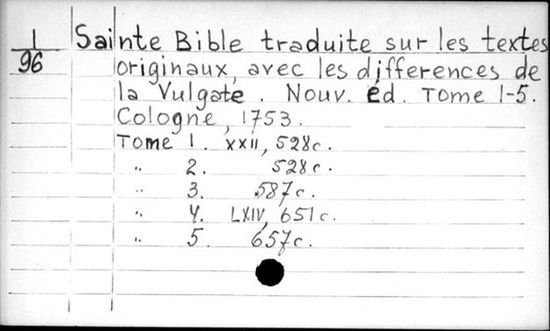 1
96
Sainte Bible traduite sur les textes
originaux, avec les differences de
la Vulgate. Nouv. éd. Tome 1-5.
Cologne, 1753.
Tome 1. XXII, 528c.
" 2. 528c.
" 3. 587c.
" 4. LXIV, 651c.
" 5. 657c.